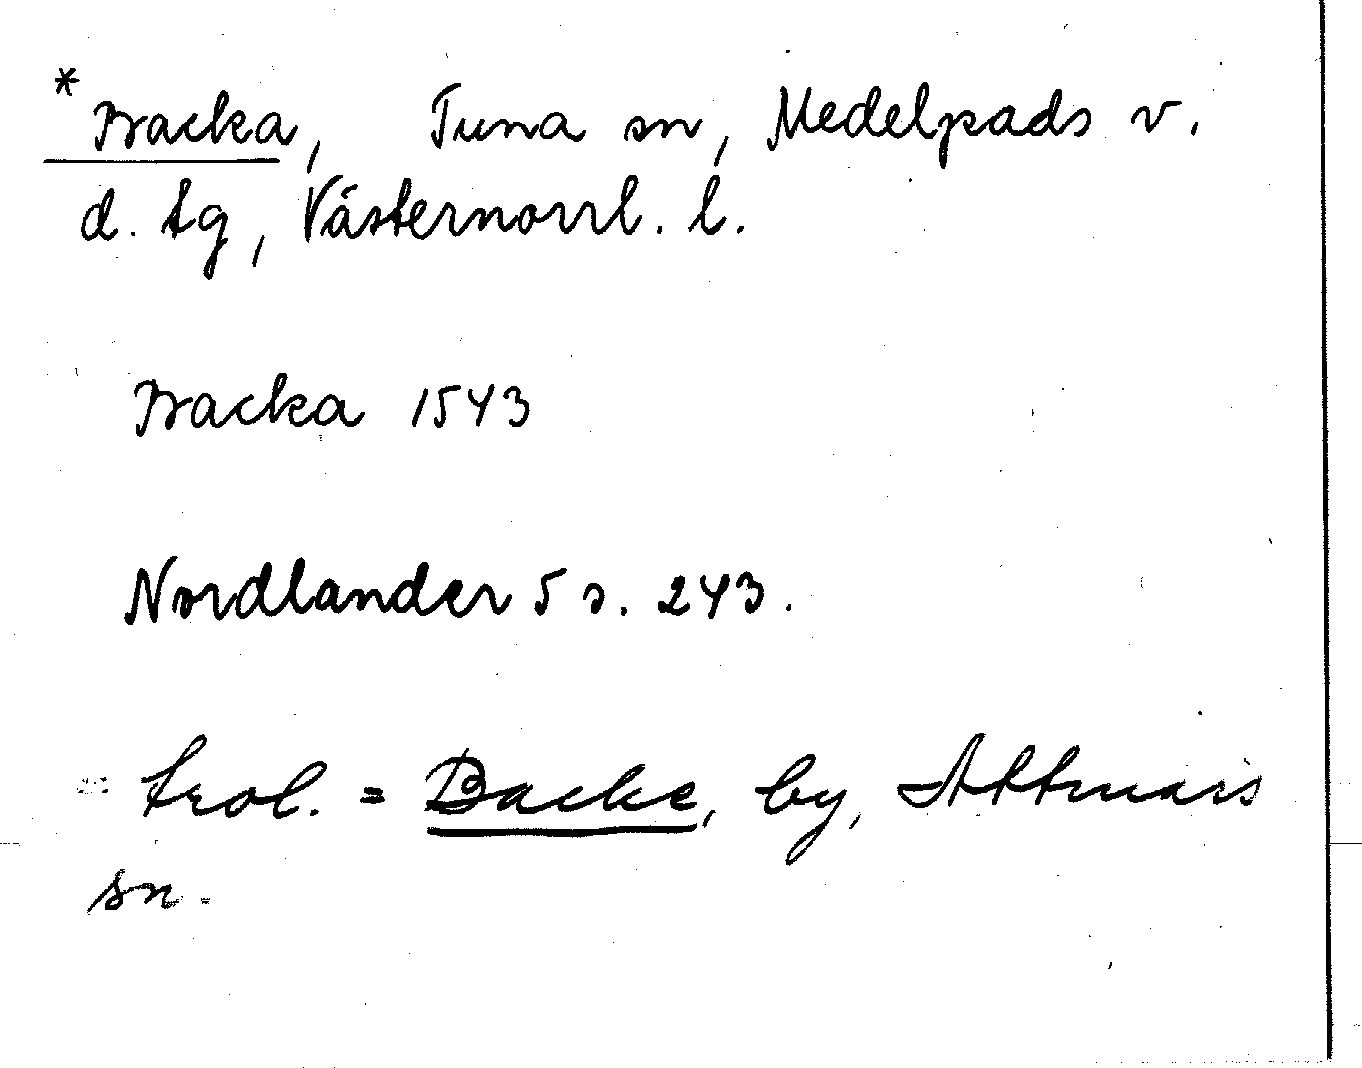 *Backa, Tuna sn, Medelpads v.
d. tg, Västernorrl. l.
Backa 1543
Nordlander 5 s. 243.
trol. = Backe, by, Attmars
sn.